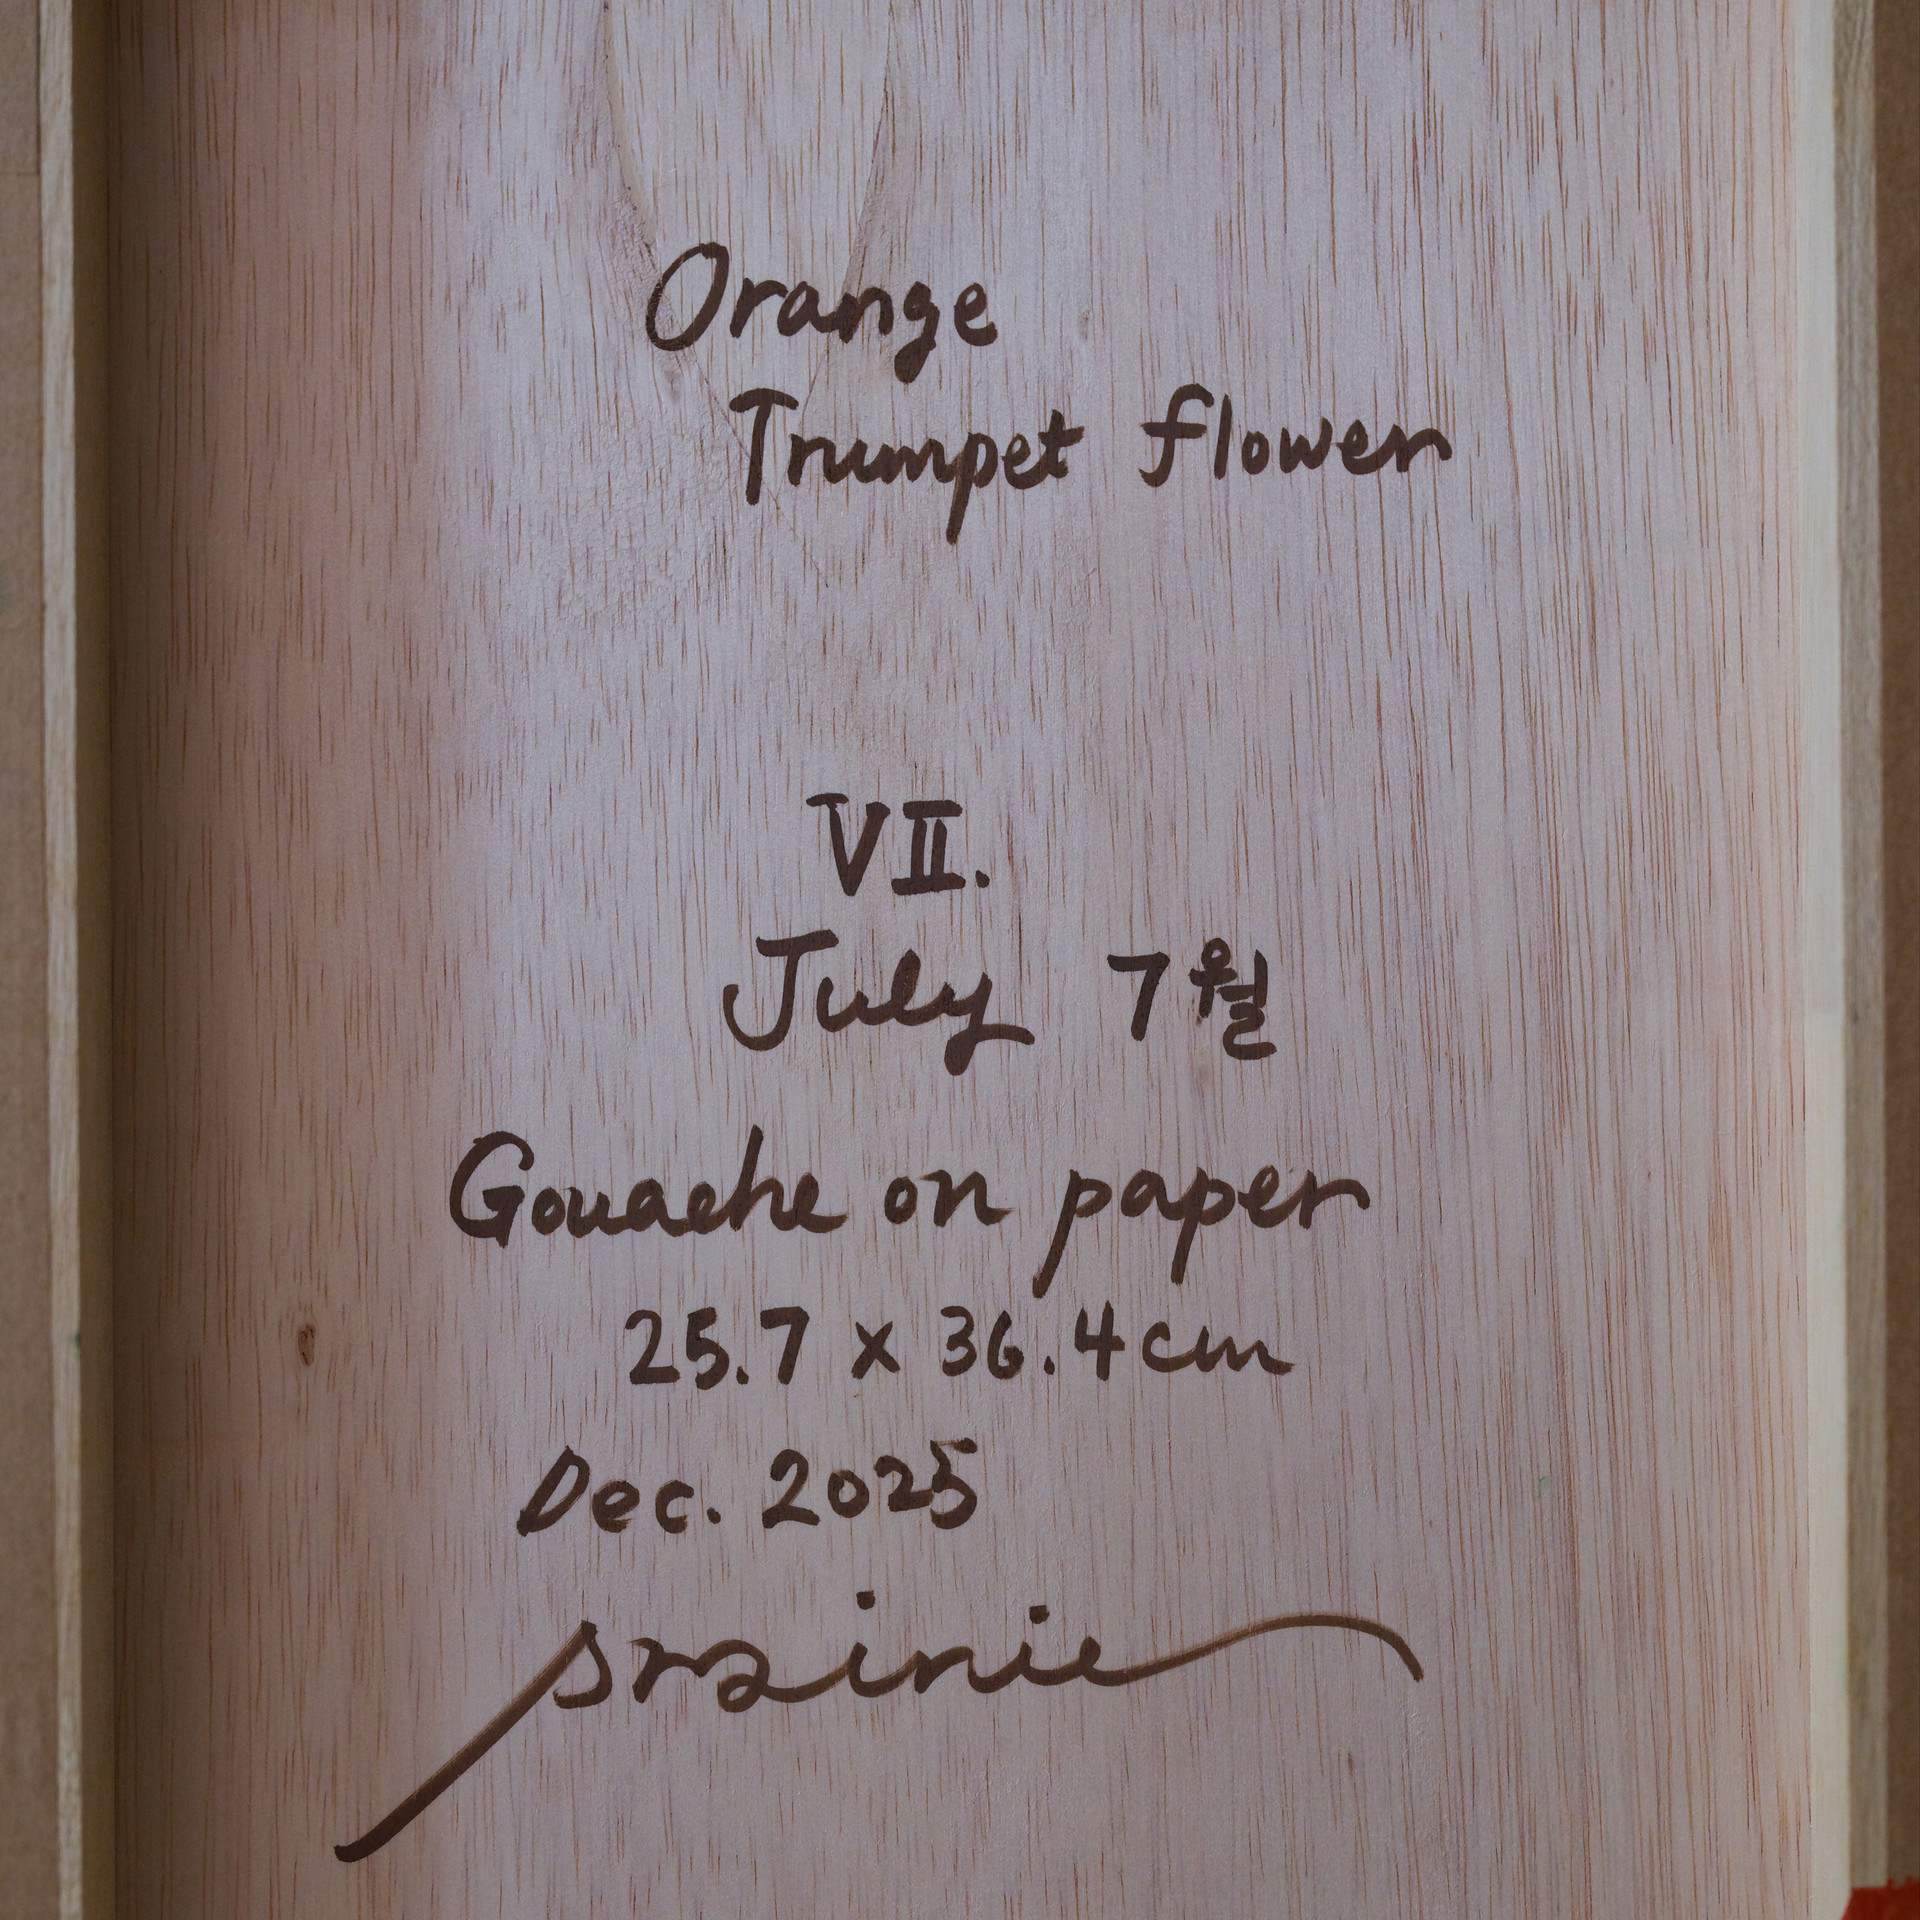 Orange
Trumpet flower
VII.
July 7월
Gouache on paper
25.7 x 36.4cm
Dec. 2025